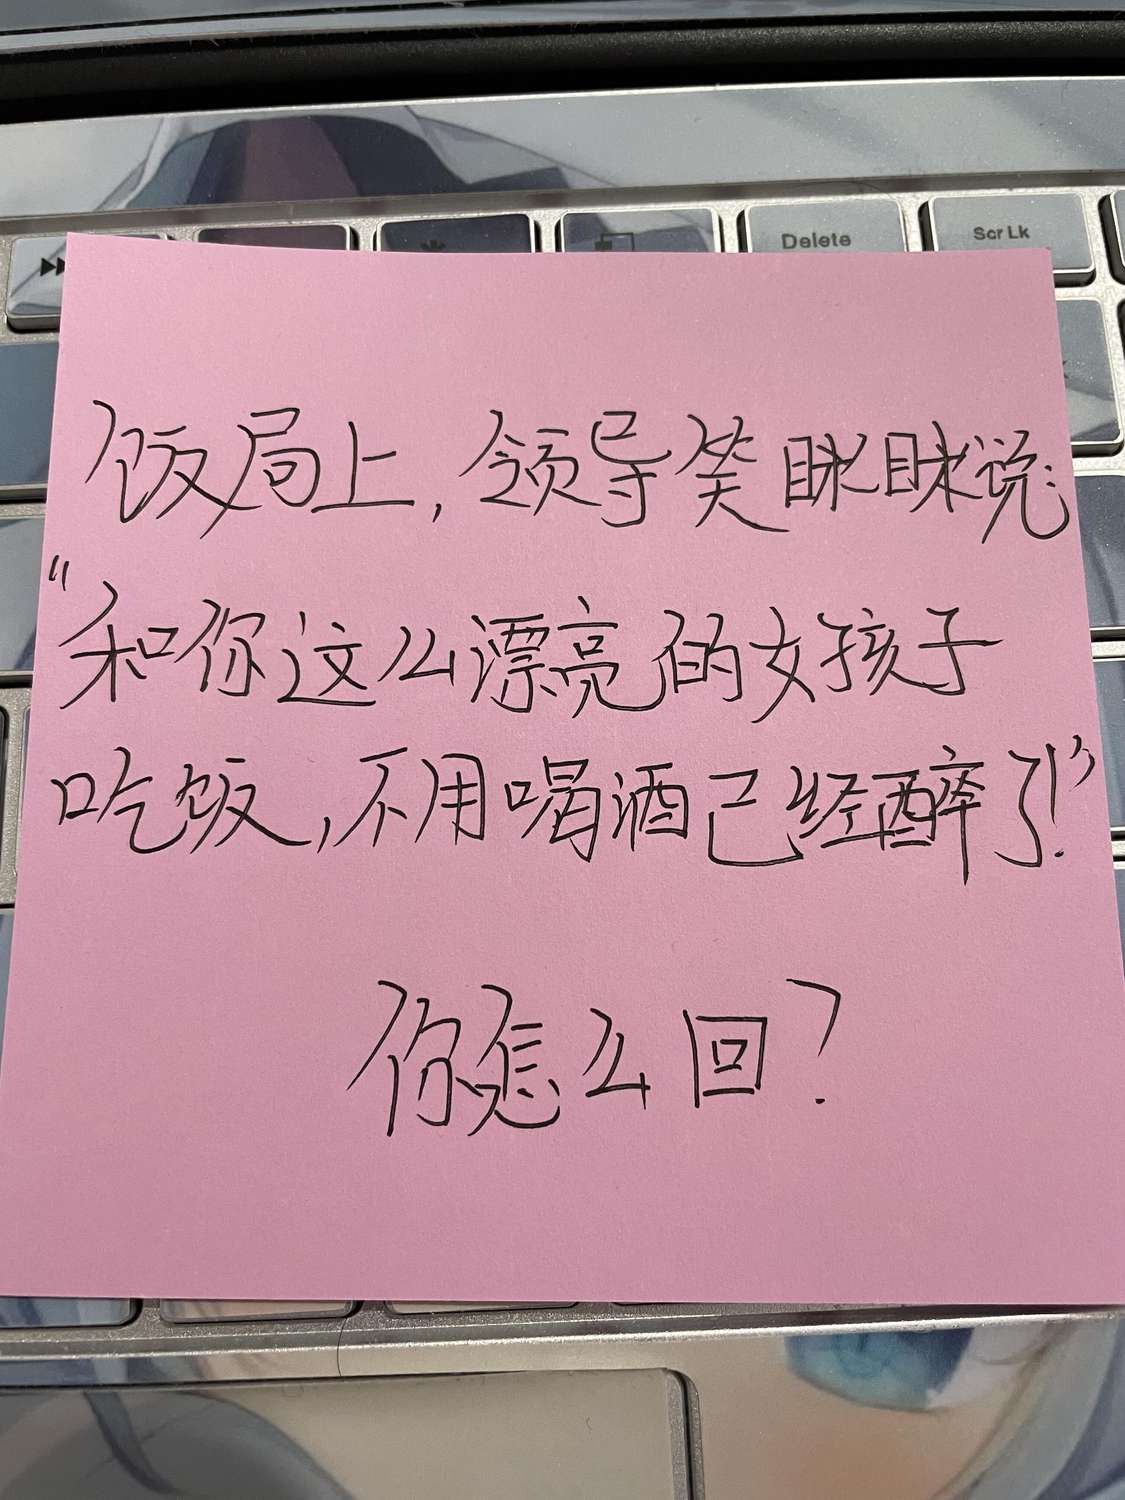 Delete
Scr Lk
饭局上,领导笑眯眯说:
“和你这么漂亮的女孩子
吃饭,不用喝酒已经醉了!”
你怎么回?